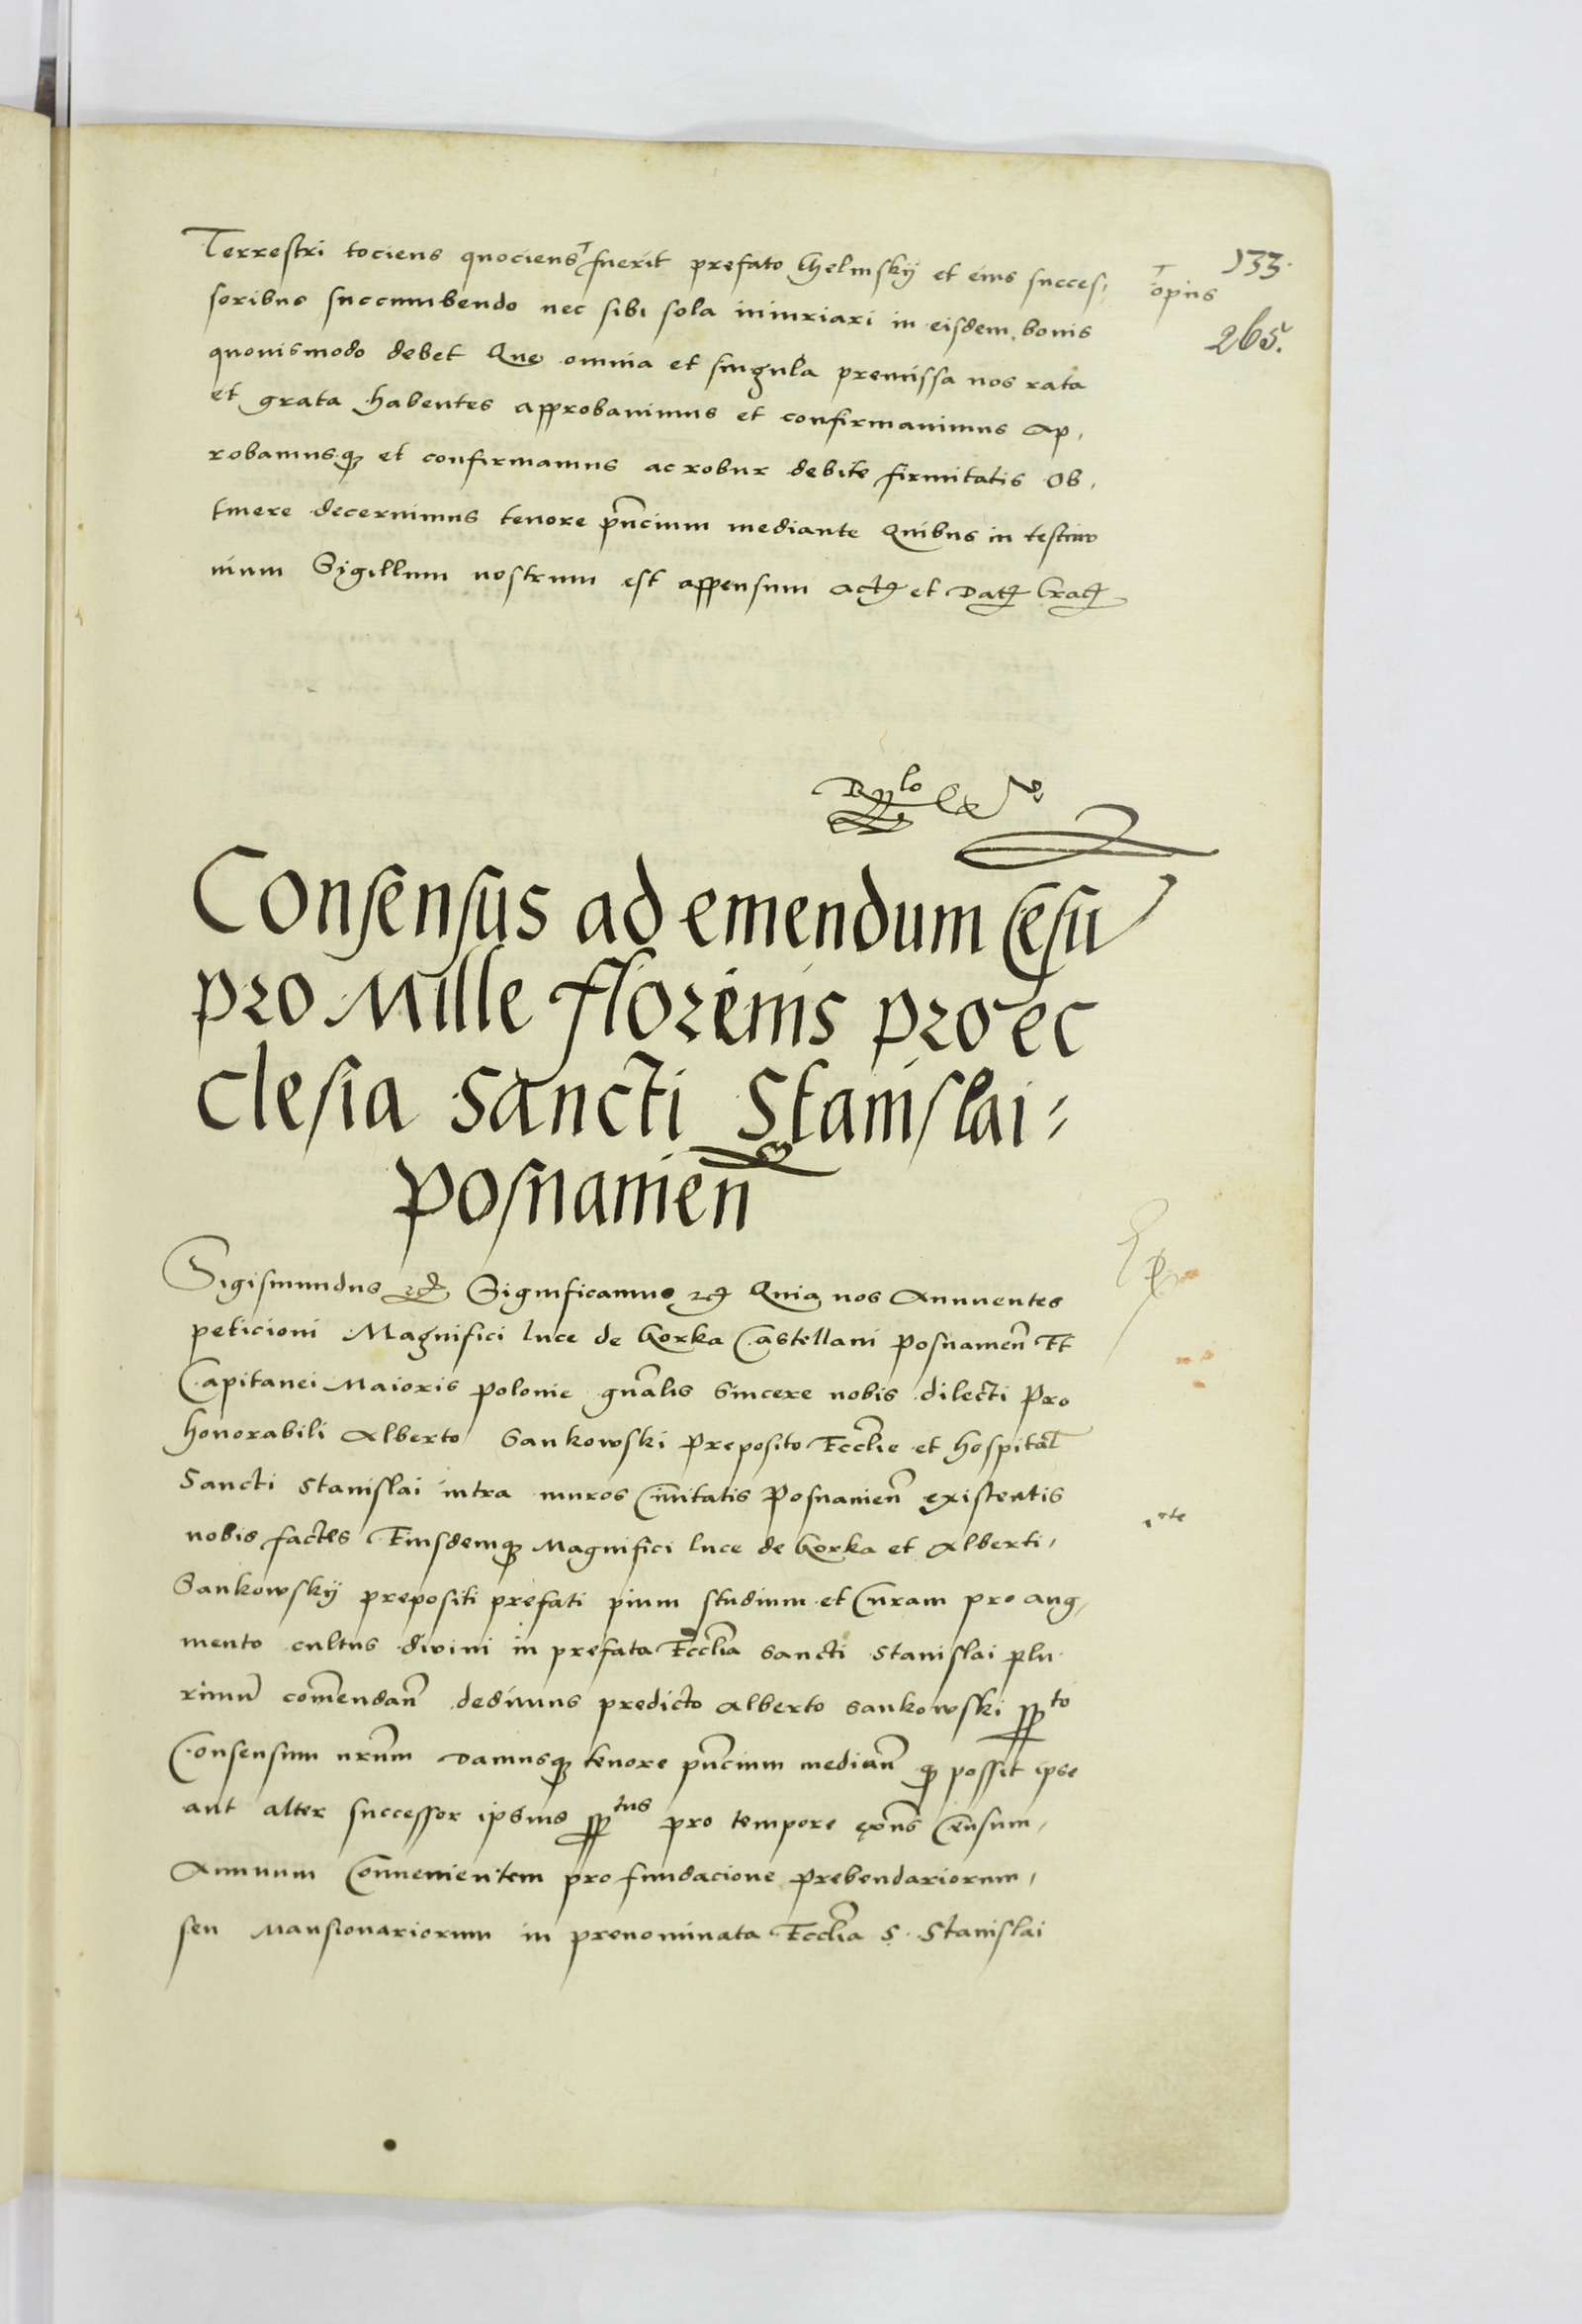 Terrestri tociens quociens ⸆ fuerit prefato Chelmskÿ et eius succes,
⸆ opus
133.
265.
soribus succumbendo nec sibi sola iniuriari in eisdem bonis
quouismodo debet Que omnia et singula premissa nos rata
et grata habentes approbauimus et confirmauimus Ap,
robamusq et confirmamus ac robur debite firmitatis Ob,
tinere decernimus tenore pñcium mediante Quibus in testimo
nium Sigillum nostrum est appensum Act et Dat Crac
Consensus ad emendum Cēsū
pro Mille florenis pro ec
clesia Sancti Stanislai
posnamēn
Sigismundus Significamus Quia nos Annuentes
peticioni Magnifici luce de Gorka Castellani posnameñ Et
Capitanei Maioris polonie gñalis Sincere nobis dilecti Pro
honorabili Alberto Sankowski Preposito Eccl̃ie et hospital̃
Sancti Stanislai intra muros Ciuitatis Posnanieñ existentis
nobis factis Eiusdemq Magnifici luce de Gorka et Alberti,
Sankowskÿ prepositi prefati pium studium et Curam pro aug,
mento cultus diuini in prefata Eccl̃ia Sancti Stanislai plu
rimũ com̃endañ dedimus predicto Alberto Sankowski pp^to
Consensum nr̃um Damusq tenore pñcium mediañ q possit ipse
aut alter successor ipsius pp^tus pro tempore exñs Censum,
Annuum Conuenientem pro fundacione prebendariorum,
seu Mansionariorum in prenominata Eccl̃ia S. Stanislai